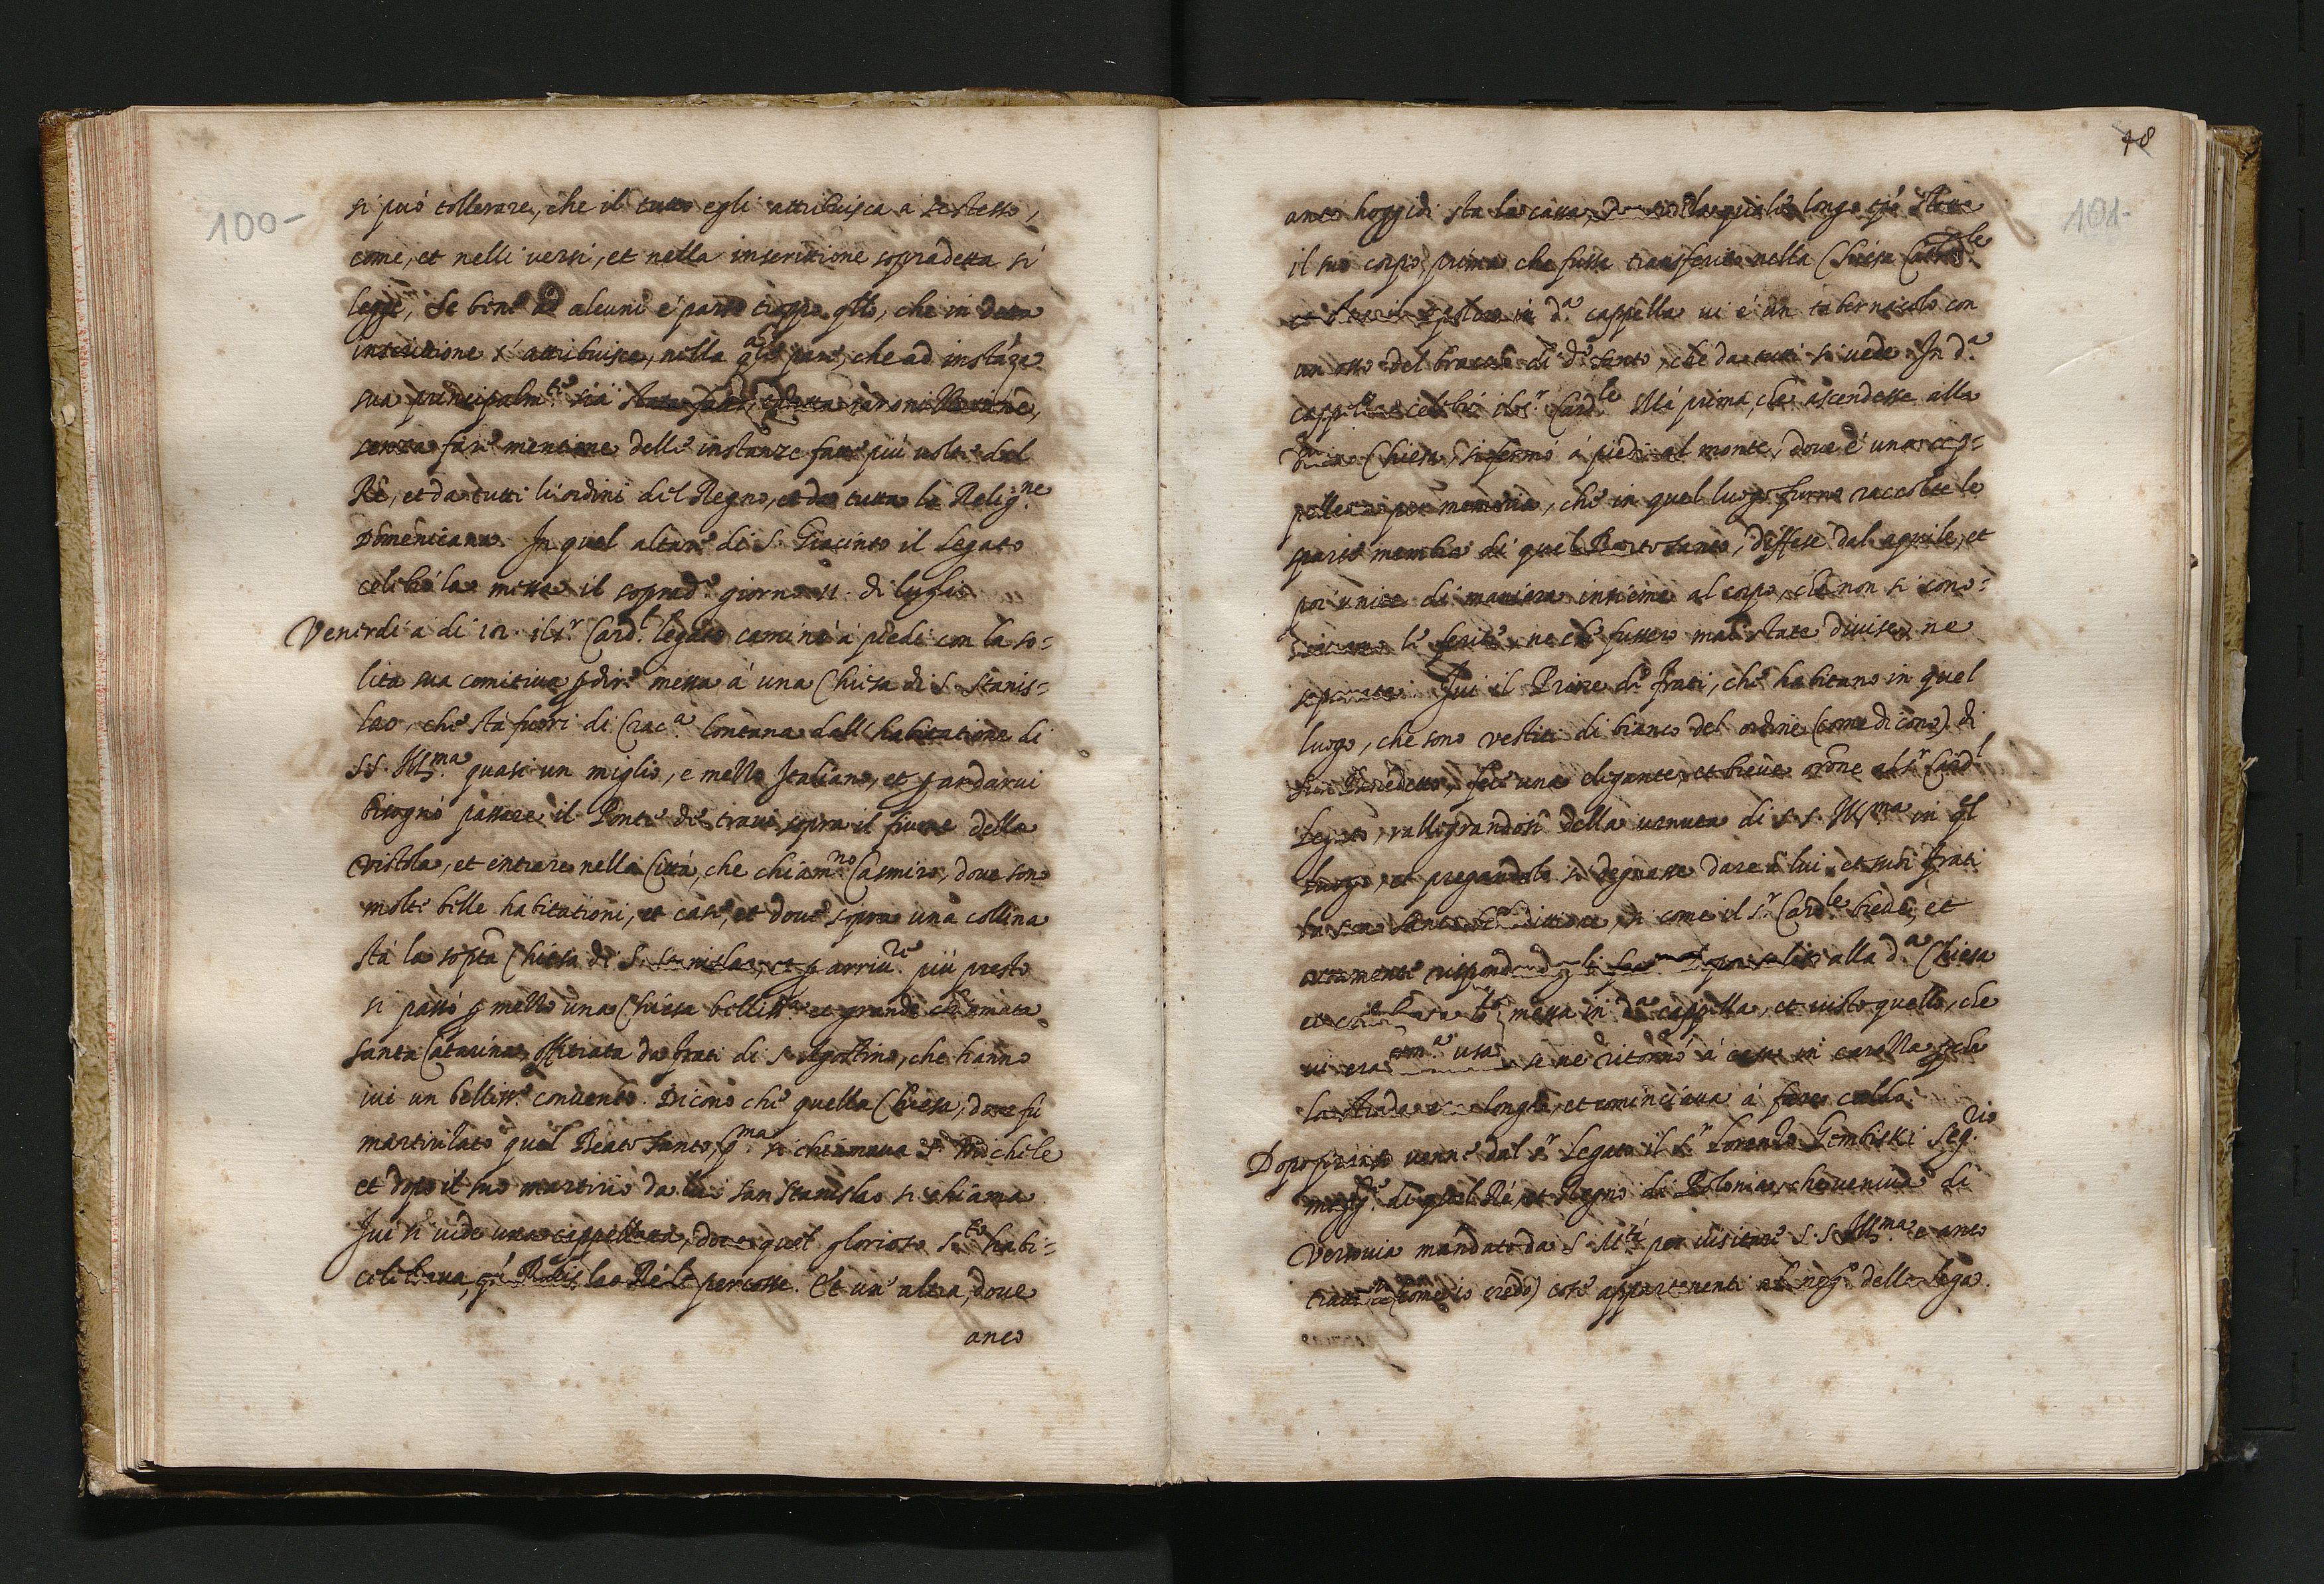 100-
si può tollerare, che il tutto egli attribuisca à se stesso,
come, et nelli versi, et nella inscrittione sopradetta si
legge, Se bene ad alcuni è parso troppo qllo, che in detta
inscrittione s'attribuisce, nella qle pare, che ad instāza
sua principalm.te sia stata fatta,
senza fare mentione delle instanze fatte più volte dal
Rè, et da tutti li ordini del Regno, et da tutta la Relig.ne
Domenicana. In quel altare di S. Giacinto il Legato
celebrò la messa il soprad.o giorno 11. di luglio.
Venerdi a di 12. il s.r Card.l Legato caminò à piedi con la so=
lita sua comitiua p dire messa à una Chiesa di S. Stanis=
lao, che stà fuori di Crac.a lontana dall'habitatione di
S.S. Ill.ma quasi un miglio, e mezzo Italiano, et p andarui
bisognò passare il Ponte di traui sopra il fiume della
Vistola, et entrare nella Città, che chiam.no Casmiro, doue sono
molte belle habitationi, et case, et doue sopra una collina
stà la sopta Chiesa di S. Stanislao, et p arriu.re più presto
si passò p mezzo una Chiesa belliss.a et grande chiamata
santa Catarina, offitiata da frati di s. Agostino, che hanno
iui un belliss.o conuento. Dicono che quella Chiesa, doue fu
martirizato quel Beato santo, p.ma si chiamaua S. Michele
et dopo il suo martirio da lui san Stanislao si chiama.
Iui si uide una cappelletta, doue quel glorioso S.to habi=
celebraua, lao Rè lo percosse. Et un'altra, doue
anco
48
101-
anco hoggidi sta la cassa, nella quale longo tpo stette
il suo corpo, prima che fusse transferito nella Chiesa Cathed.le
in d.a cappella ui è un tabernacolo con
un osso del braccio di d.o santo, che da tutti si uede. In d.a
cappella celebrò il s.r Card.le Mà prima, che ascendesse alla
Chiesa, si fermò à piedi al monte, doue è una cap=
pelletta per memoria, che in quel luogo furno raccolte le
sparse membra di quel Beato santo, diffese dal aquile, et
poi unite di maniera insieme al corpo, che non si cono=
sceuano le ferite, ne che fussero mai state diuise, ne
separate. Iui il Priore di frati, che habitano in quel
luogo, che sono vestiti di bianco del ordine (come dicono) di
San Benedetto, fece una elegante, et breue orōne al s.r Card.l
Legato, rallegrandosi della uenuta di S.S. Ill.ma in ql
luogo, et pregandolo si degnasse dare à lui, et suoi frati
la sua santa bēdittione, si come il s.r Card.le diede, et
rispondendogli alla d.a Chiesa
et messa in d.a cappella, et uisto quello, che
ui era se ne ritornò à casa in carozza p che
la strada era longa, et cominciaua à fare caldo.
Dopo pranso uenne dal s.r Legato il s.r Lorenzo Gembiski Seg.rio
magg.e di quel Rè, et Regno di Polonia, che veniua di
Versouia mandato da S. M.tà per uisitare S.S. Ill.ma e anco
trattare (come io credo) cose appartenenti al neg.o della Lega.